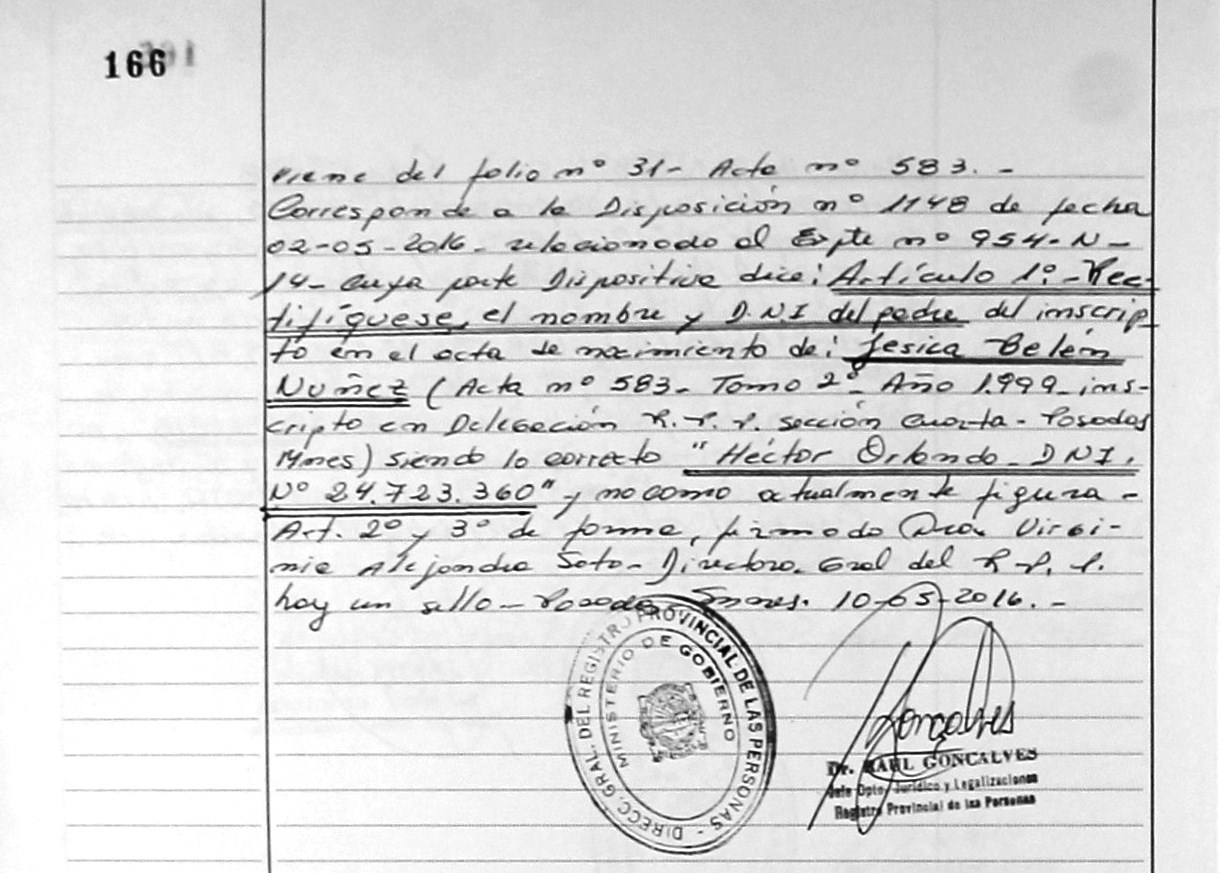 166
Viene del folio nº 31- Acta nº 583.-
Corresponde a la Disposición nº 1148 de fecha
02-05-2016- relacionado al Expte nº 954-N-
14- cuya parte Dispositiva dice: Artículo 1º.- Rec-
tifíquese, el nombre y D.N.I del padre del inscrip-
to en el acta de nacimiento de: Jesica Belén
Nuñez (Acta nº 583- Tomo 2º- Año 1.999- ins-
cripto en Delegación R.P.P. sección Cuarta- Posadas
Mnes) siendo lo correcto "Héctor Orlando- DNI.
Nº 24.723.360" y no como actualmente figura-
Art. 2º y 3º de forma, firmado Dra. Virgi-
nia Alejandra Soto- Directora. Gral del R.P.P.
hay un sello- Posadas Mnes. 10-05-2016.-
DIRECC. GRAL. DEL REGISTRO PROVINCIAL DE LAS PERSONAS -
MINISTERIO DE GOBIERNO
Goncalves
Dr. RAUL GONCALVES
Jefe Dpto. Jurídico y Legalizaciones
Registro Provincial de las Personas